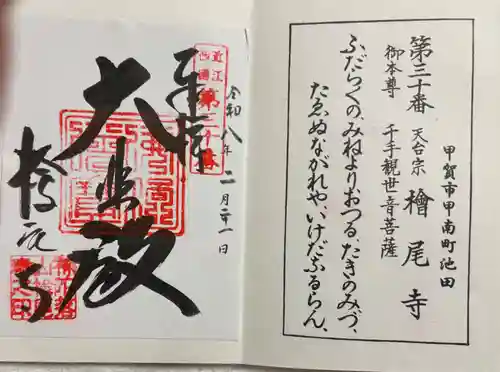 甲賀市甲南町池田
第三十番 天台宗 檜尾寺
御本尊 千手観世音菩薩
ふだらくの、みねよりおつる、たきのみづ、
たゑぬながれや、いけだなるらん、
近江西國第三十番
令和八年二月二十一日
奉拝
大悲殿
檜尾寺